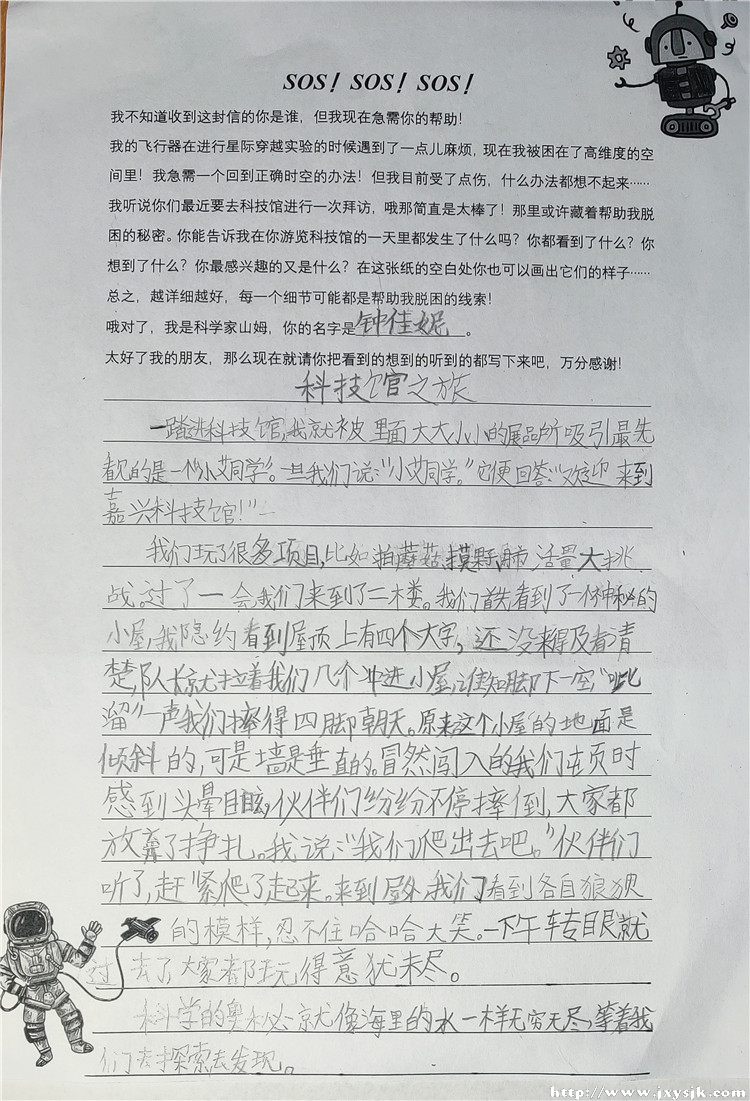 SOS! SOS! SOS!
我不知道收到这封信的你是谁，但我现在急需你的帮助！
我的飞行器在进行星际穿越实验的时候遇到了一点儿麻烦，现在我被困在了高维度的空
间里！我急需一个回到正确时空的办法！但我目前受了点伤，什么办法都想不起来……
我听说你们最近要去科技馆进行一次拜访，哦那简直是太棒了！那里或许藏着帮助我脱
困的秘密。你能告诉我在你游览科技馆的一天里都发生了什么吗？你都看到了什么？你
想到了什么？你最感兴趣的又是什么？在这张纸的空白处你也可以画出它们的样子……
总之，越详细越好，每一个细节可能都是帮助我脱困的线索！
哦对了，我是科学家山姆，你的名字是钟佳妮。
太好了我的朋友，那么现在就请你把看到的想到的听到的都写下来吧，万分感谢！
科技馆之旅
一踏进科技馆，我就被里面大大小小的展品所吸引最先
看见的是一个“小艾同学”。一旦我们说：“小艾同学。”它便回答：“欢迎来到
嘉兴科技馆！”
我们玩了很多项目，比如拍蘑菇、摸黑、肺活量大挑
战。过了一会我们来到了二楼。我们首先看到了一个神秘的
小屋，我隐约看到屋顶上有四个大字，还没来得及看清
楚，队长就拉着我们几个冲进小屋，谁知脚下一空“呲
溜”一声我们摔得四脚朝天。原来这个小屋的地面是
倾斜的，可是墙是垂直的。冒然闯入的我们在顷时
感到头晕目眩，伙伴们纷纷不停摔倒，大家都
放弃了挣扎。我说：“我们爬出去吧。”伙伴们
听了，赶紧爬了起来。来到屋外，我们看到各自狼狈
的模样，忍不住哈哈大笑。一下午转眼就
过去了大家都玩得意犹未尽。
科学的奥秘就像海里的水一样无穷无尽，等着我
们去探索去发现。
http://www.jxysjk.com